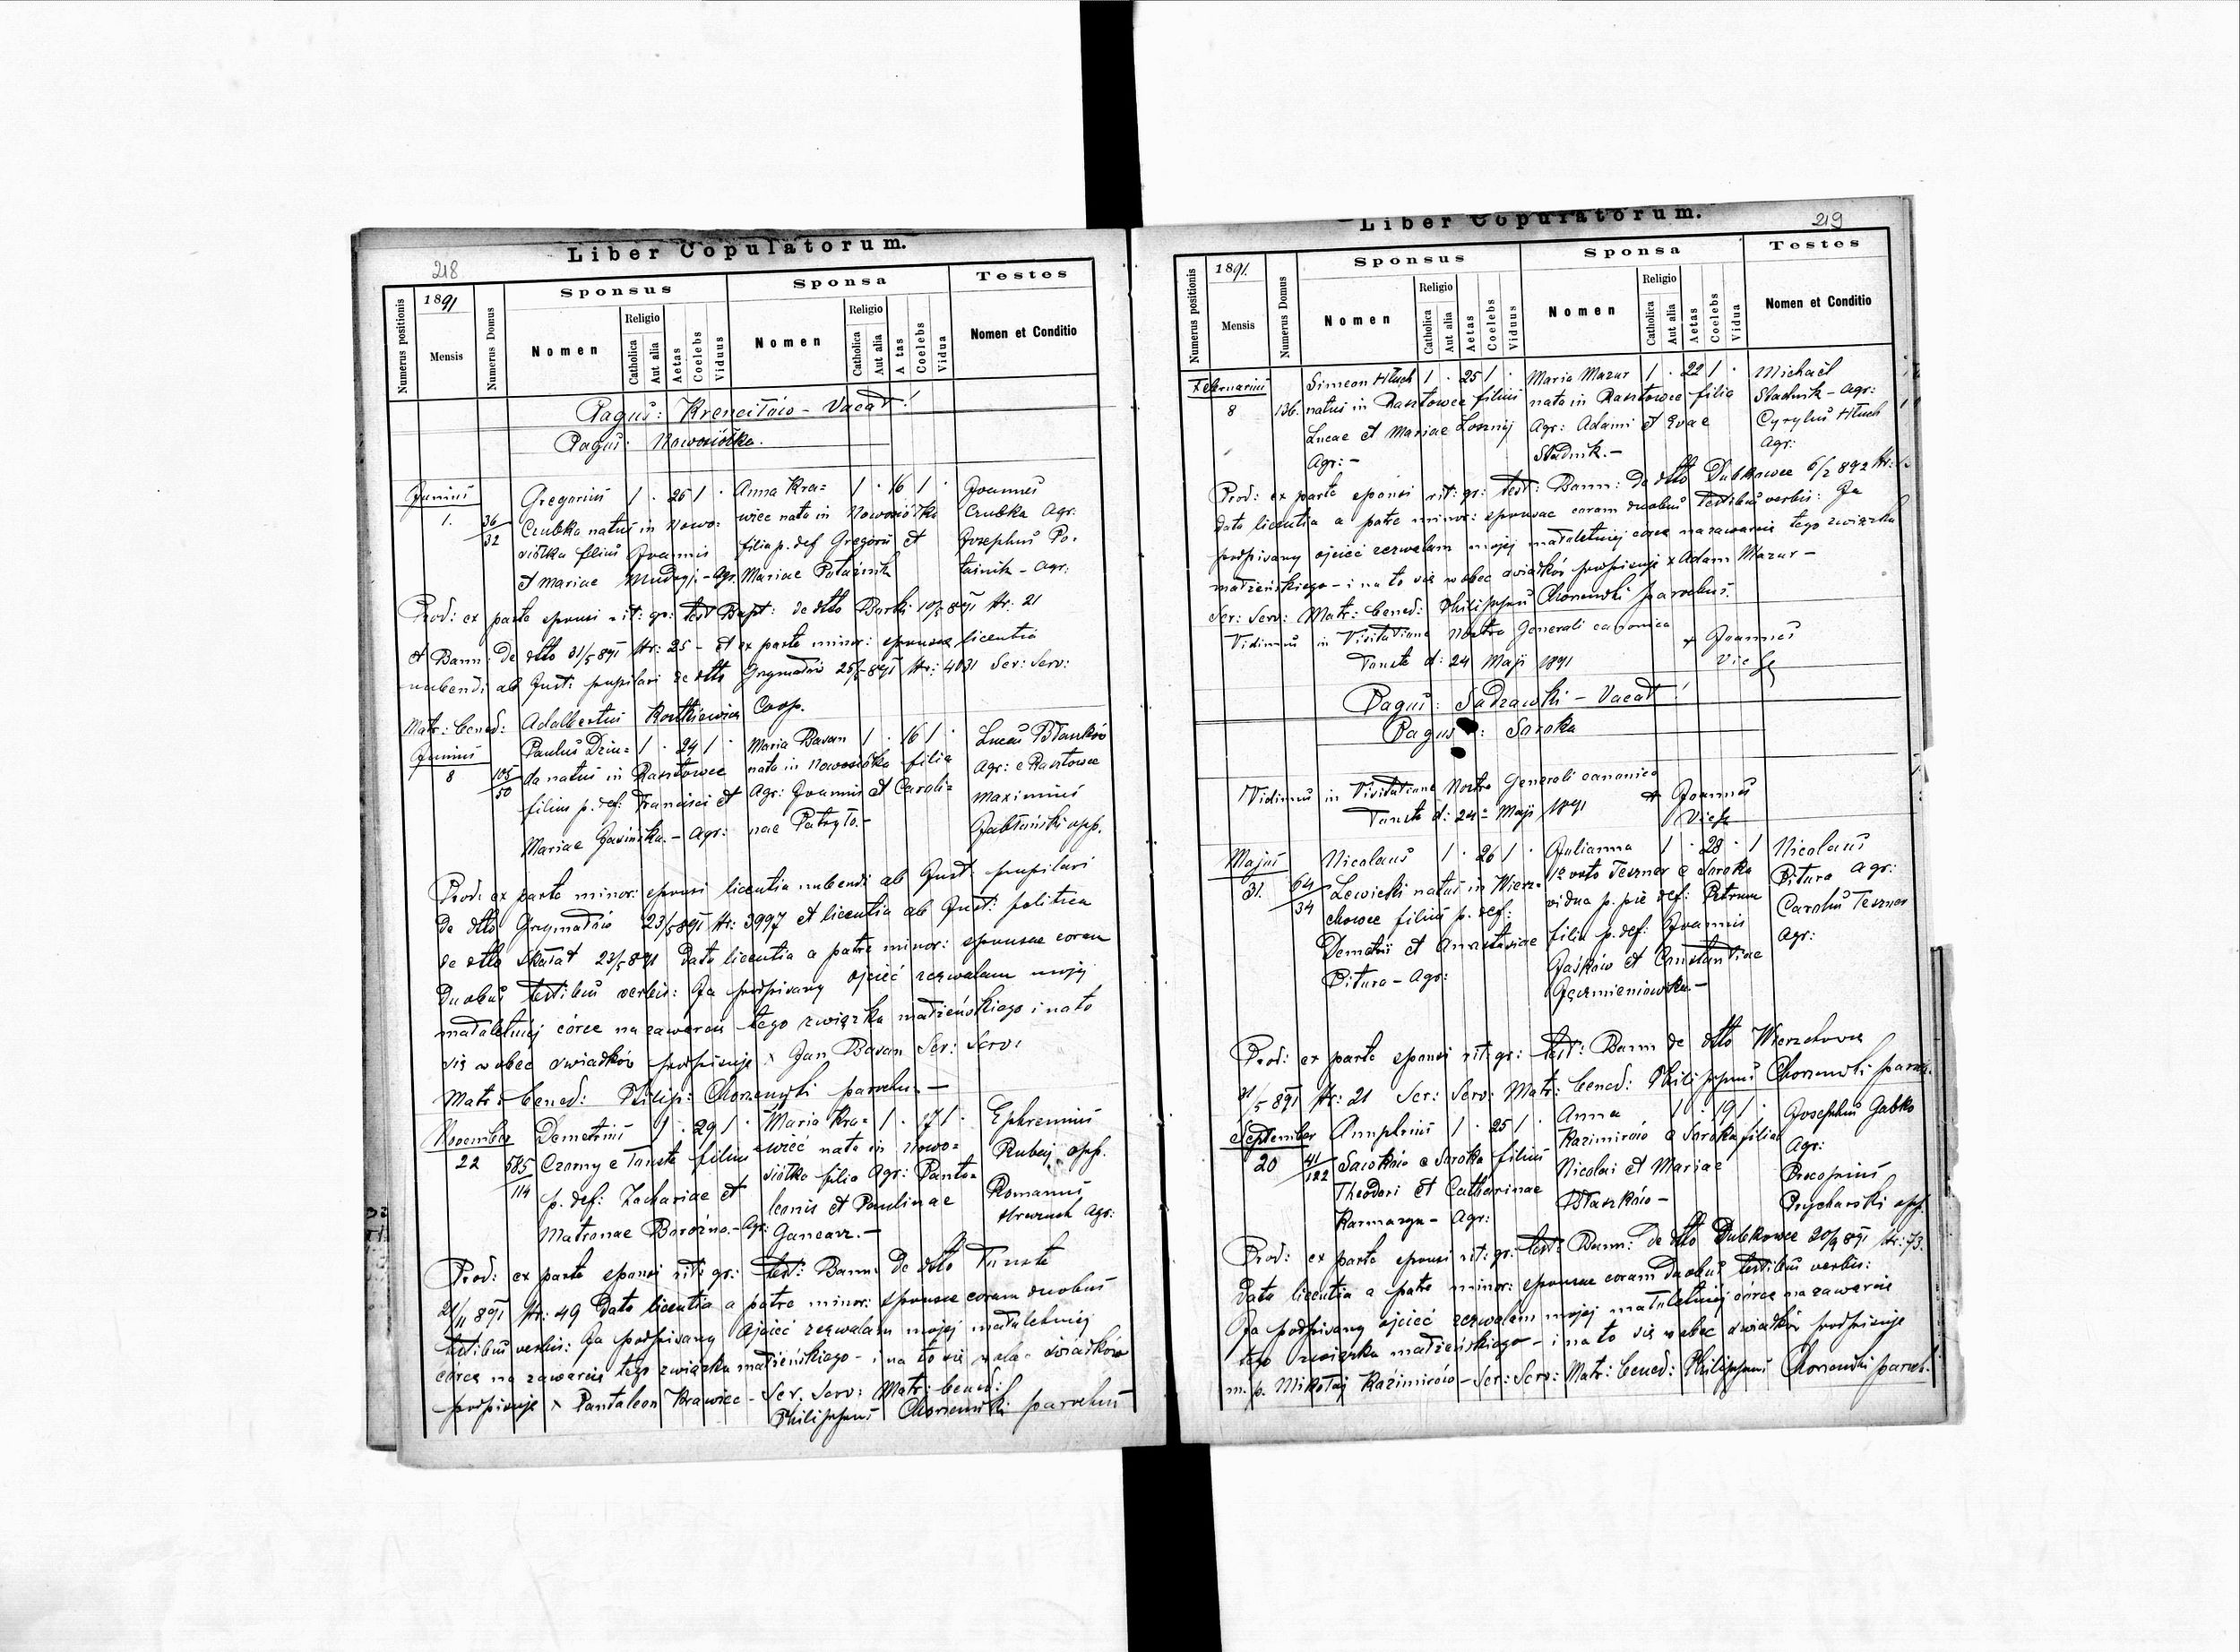 Liber Copulatorum.
218
1891
Numerus positionis
Mensis
Numerus Domus
Sponsus
Nomen
Religio
Catholica
Aut alia
Aetas
Coelebs
Viduus
Sponsa
Nomen
Religio
Catholica
Aut alia
A tas
Coelebs
Vidua
Testes
Nomen et Conditio
Pagus: Krenciłów - Vacat!
Pagus: Nowosiółka.
Junius Gregorius 1 · 26 1 · Anna Kra= 1 · 16 1 · Joannes
1. 36/32 Czubka natus in Nowo= wiec nata in Nowosiółka Czubka Agr:
siółka filius Joannis filia p. def Gregorii et Josephus Po=
et Mariae - Agr. Mariae Potaśnik taśnik - Agr:
Prod: ex parte sponsi rit: gr: test Bapt: de dtto Borki 10/5 891 Nr: 21
et Bann: de dtto 31/5 891 Nr: 25 - et ex parte minor: sponsae licentia
nubendi ab Just: pupilari de dtto Grzymałów 25/5 891 Nr: 4031 Ser: Serv:
Matr: bened: Adalbertus Coop.
Junius Paulus Dziu= 1 · 24 1 · Maria Bavan 1 · 16 1 · Lucas
8 105/50 da natus in Rasztowce nata in Nowosiółka filia Agr: e Rasztowce
filius p. def: Francisci et Agr: Joannis et Caroli= Maximus
Mariae - Agr: nae Patryło.- Jabłoński opp.
Prod: ex parte minor: sponsi licentia nubendi ab Just: pupilari
de dtto Grzymałów 23/5 891 Nr: 3997 et licentia ab Just: politica
de dtto Skałat 23/5 891 Data licentia a patre minor: sponsae coram
duobus testibus verbis: Ja podpisany ojciéc zezwalam mojéj
małoletniéj córce na zawarcie tego związku małżeńskiego i na to
się wobec świadków podpisuję × Jan Bavan Ser: Serv:
Matr: bened: Philip: Chorzewski parochus -
November Demetrius 1 · 29 1 · Maria Kra= 1 · 17 1 · Ephremius
22 585/114 Czorny e Touste filius wiéc nata in Nowo= Rubaj opp.
p. def: Zachariae et siółka filia Agr: Panta= Romanus
Matronae - Agr: leonis et Paulinae Agr:
Prod: ex parte sponsi rit: gr: test: Bann: de dtto Touste
21/11 891 Nr: 49 Data licentia a patre minor: sponsae coram duobus
testibus verbis: Ja podpisany Ojciéc zezwalam mojej małoletniej
córce na zawarcie tego związku małżeńskiego - i na to się wobec świadków
podpisuję × Pantaleon Krawiec - Ser. Serv: Matr: bened:
Philippus Chorzewski parochus
Liber Copulatorum.
219
1891.
Numerus positionis
Mensis
Numerus Domus
Sponsus
Nomen
Religio
Catholica
Aut alia
Aetas
Coelebs
Viduus
Sponsa
Nomen
Religio
Catholica
Aut alia
Aetas
Coelebs
Vidua
Testes
Nomen et Conditio
Februarius Simeon Hłuch 1 · 25 1 · Maria Mazur 1 · 22 1 · Michaël
8 136. natus in Rasztowce filius nata in Rasztowce filia Stadnik - Agr:
Lucae et Mariae Agr: Adami et Evae Cyrylus Hłuch
Agr: - Stadnik.- Agr:
Prod: ex parte sponsi rit: gr: test: Bann: de dtto Dubkowce 6/2 892 Nr:
data licentia a patre minor: sponsae coram duobus testibus verbis: Ja
podpisany ojciéc zezwalam mojej małoletniej córce na zawarcie tego związku
małżeńskiego - i na to się wobec świadków podpisuję × Adam Mazur -
Ser: Serv: Matr: bened: Philippus Chorzewski parochus.
Vidimus in Visitatione Nostra Generali canonica
Touste d: 24 Maji 1891 + Joannes
Pagus: Sadzawki - Vacat!
Pagus: Soroka
Vidimus in Visitatione Nostra Generali canonica
Touste d: 24 Maji 1891 + Joannes
Majus Nicolaus 1 · 26 1 · Julianna 1 · 28 · 1 Nicolaus
31. 64/34 Lewicki natus in Wierz= 1º voto Teszner e Soroka Pitura Agr:
chowce filius p. def: vidua p. pie def: Petrum Carolus Teszner
Demetrii et Anastasiae filia p. def: Joannis Agr:
Pitura - Agr: Jaśków et Constantiae
Jęczmieniowska.-
Prod: ex parte sponsi rit: gr: test: Bann de dtto Wierzchowce
31/5 891 Nr: 21 Ser: Serv: Matr: bened: Philippus Chorzewski paroch.
September 1 · 25 1 · Anna 1 · 19 1 · Josephus Gabko
20 41/122 e Soroka filius Kazimirów e Soroka filia Agr:
Theodori et Catharinae Nicolai et Mariae Procopius
Karmazyn - Agr: Błaszków - Prycharski opp.
Prod: ex parte sponsi rit: gr: test: Bann: de dtto Dubkowce 20/9 891 Nr: 73.
Data licentia a patre minor: sponsae coram duobus testibus verbis:
Ja podpisany ojciéc zezwalam mojej małoletniéj córce na zawarcie
tego związku małżeńskiego - i na to się wobec świadków podpisuję
m. p. Mikołaj Kazimirów - Ser: Serv: Matr: bened: Philippus Chorzewski paroch.